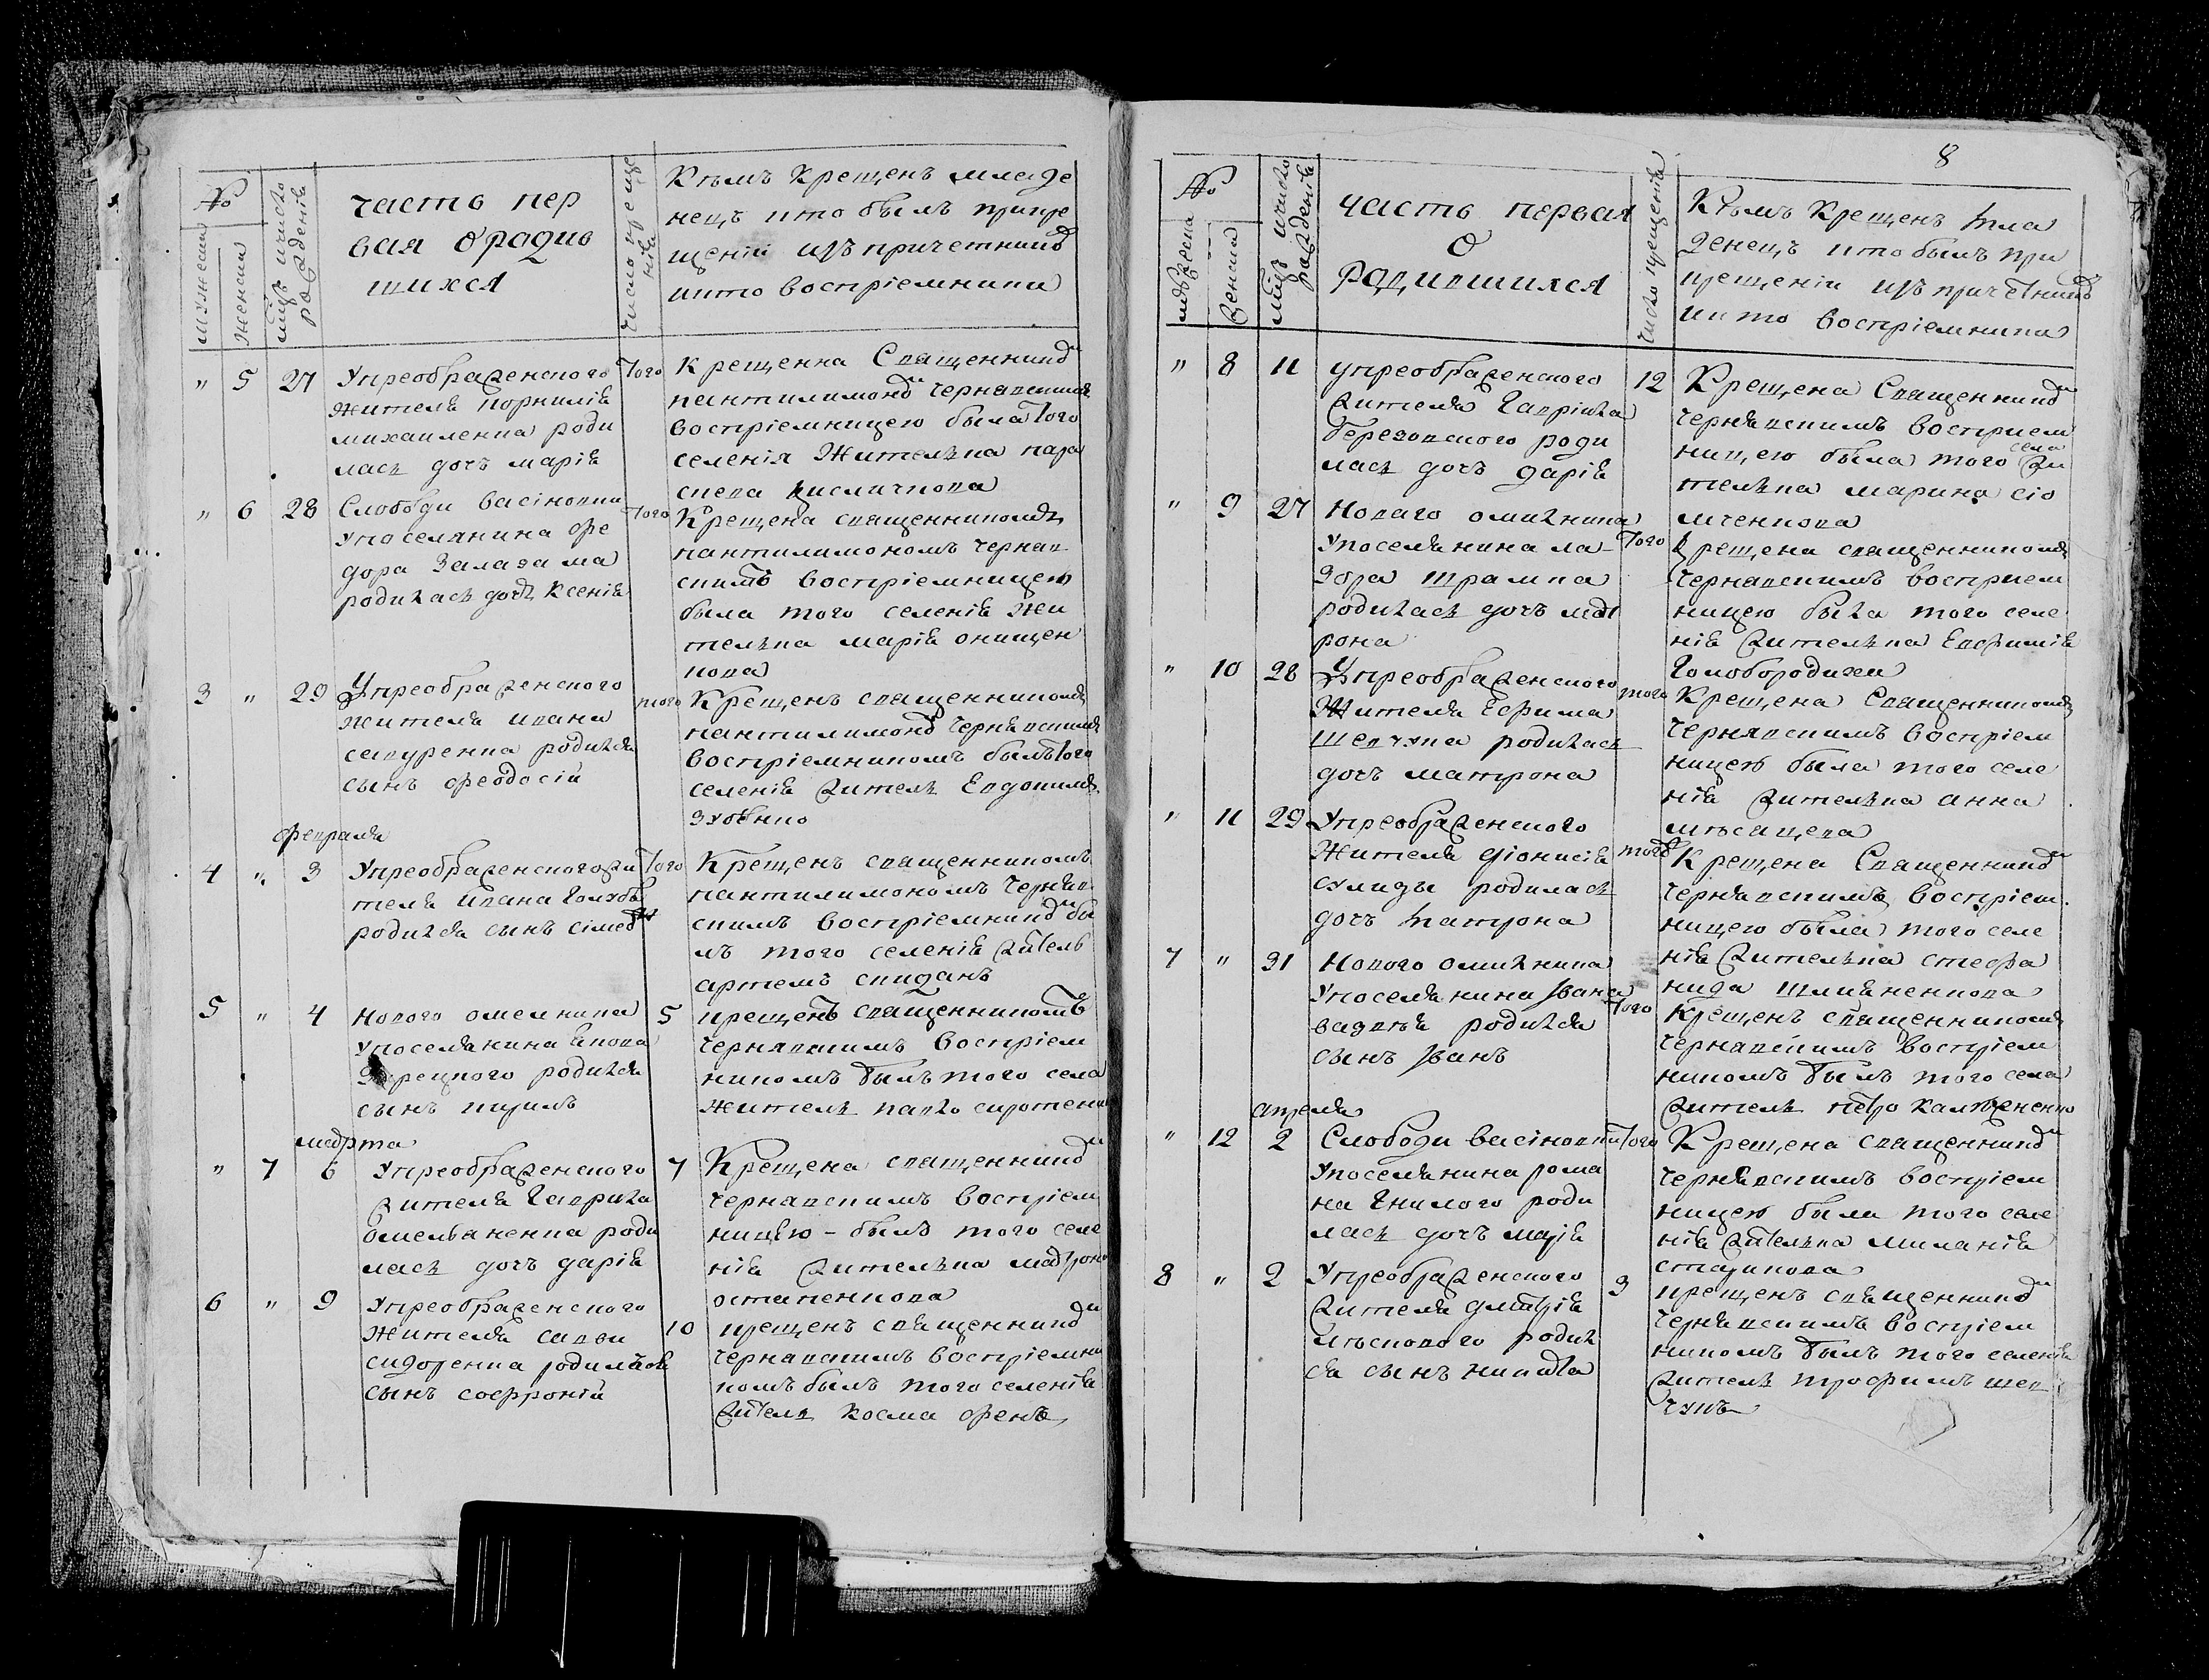 №
мужеска
женска
мцъ ичисло рожденія
часть пер
вая ѻродив
шихся
число креще нія
Кѣмъ Крещенъ младе
нецъ икто былъ прикре
щеніи изъ причетников
икто воспріемники
" 5 27 Упреображенского Того
жителя корнилія
михаиленка роди
лась дочъ марія
Крещенна Священником
пантилимоном чернявским
воспріемницею была того
селенія Жителька пара
скева кисличкова
" 6 28 Слободи васіновки Того
упоселянина фе
дора Залазама
родилась дочъ Ксенія
Крещена священникомъ
пантилимономъ черняв
скимъ воспріемницею
была того селенія жи
телька марія онищен
кова
3 " 29 Упреображенского того
жителя ивана
савуренка родился
сынъ феодосій
Крещенъ священникомъ
пантилимоном чернявскимъ
воспріемникомъ былъ того
селенія житель Евдокимъ
зубенко
февраля
4 " 3 Упреображенского жи Того
теля ивана Голуба
родился сынъ сімеон
Крещенъ священникомъ
пантилимономъ черняв
скимъ воспріемником бы
лъ того селенія житель
артемъ скиданъ
5 " 4 Нового омелника 5
упоселянина якова
Зарецкого родился
сынъ кирилъ
крещенъ священникомъ
чернявскимъ воспріем
никомъ былъ того села
житель павло сиротенко
марта
" 7 6 Упреображенского 7
жителя Гаврила
ѻмельяненка роди
лась дочъ дарія
Крещена священником
чернявскимъ воспріем
ницею - былъ того селе
нія жителька матрона
остапенкова
6 " 9 Упреображенского 10
жителя савви
сидоренка родился
сынъ софроній
крещенъ священником
чернявскимъ воспріемни
комъ былъ того селенія
житель косма френъ
8
№
мужеска
женска
мцъ ичисло рожденія
часть первая
ѻ
родившихся
число крещенія
Кѣмъ Крещенъ мла
денецъ икто былъ при
крещеніи изъ причетников
икто воспріемника
" 8 11 упреображенского 12
жителя Гавріила
березовского роди
лась дочъ дарія
Крещена Священником
чернявскимъ восприем
ницею была того села жи
телька марина сіо
мченкова
" 9 27 Новаго омилника
упоселянина ла- Того
зора шрамка
родилась дочъ мат
рона
Крещена священникомъ
чернявскимъ восприем
ницею была того селе
нія жителька Евфимія
Голобородикеи
" 10 28 Упреображенского того
Жителя Ефима
шевчука родилась
дочъ матрона
Крещена Священникомъ
чернявскимъ воспріем
ницею была того селе
нія жителька анна
мѣсацева
" 11 29 Упреображенского
Жителя діонисія того
сулиды родилась
дочъ матрона
Крещена Священником
чернявскимъ воспріем
ницею была того селе
нія жителька стефа
нида шліаненкова
7 " 31 Нового омилника
упоселянина Ивана Того
вадвѣя родился
сынъ Іванъ
Крещенъ священникомъ
чернявскимъ воспріем
никомъ былъ того села
житель петро калюженко
апреля
" 12 2 Слободи васіновки Того
упоселянина рома
на Гнилого роди
лась дочъ марія
Крещена священником
чернявскимъ воспріем
ницею была того селе
нія жителька миланія
старикова
8 " 2 Упреображенского 3
жителя дмитрія
лѣскового родил
ся сынъ никита
крещенъ священником
чернявскимъ воспріем
никомъ былъ того селенія
житель трофимъ шев
чукъ